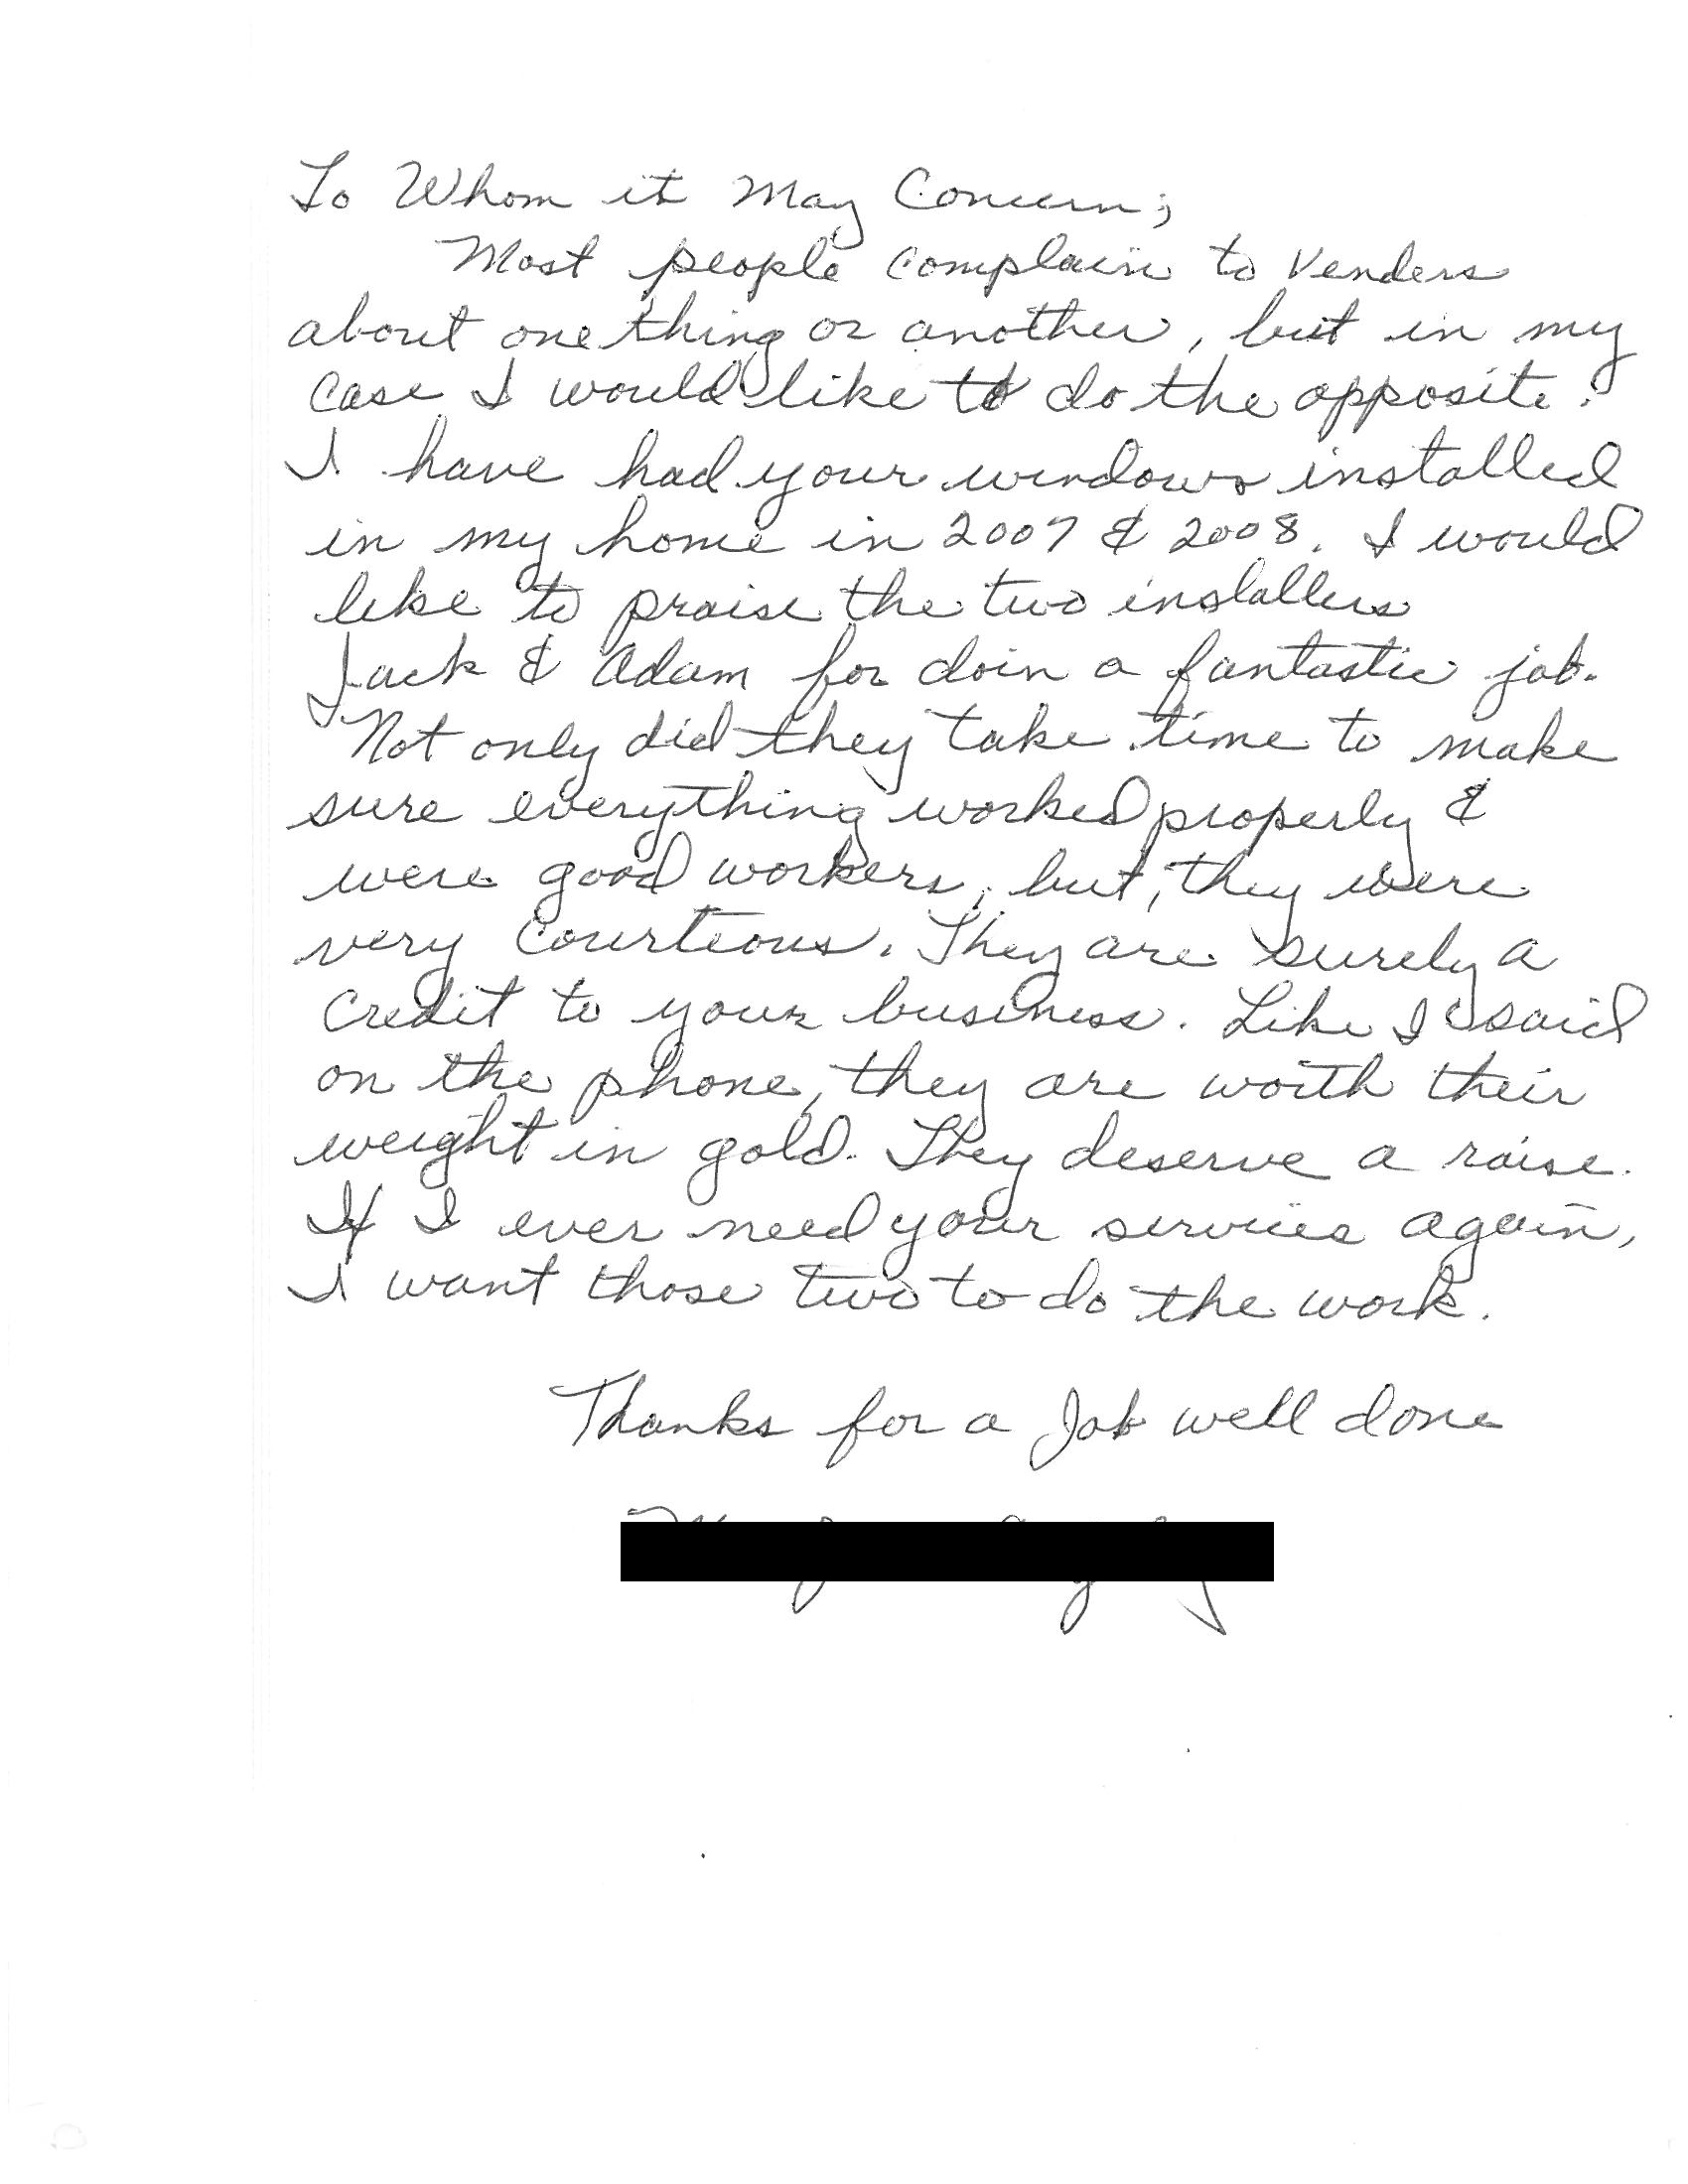 To Whom it May Concern;
Most people complain to venders
about one thing or another, but in my
case I would like to do the opposite.
I have had your windows installed
in my home in 2007 & 2008. I would
like to praise the two installers
Jack & Adam for doin a fantastic job.
Not only did they take time to make
sure everything worked properly &
were good workers, but, they were
very courteous. They are surely a
credit to your business. Like I said
on the phone, they are worth their
weight in gold. They deserve a raise.
If I ever need your services again,
I want those two to do the work.
Thanks for a Job well done